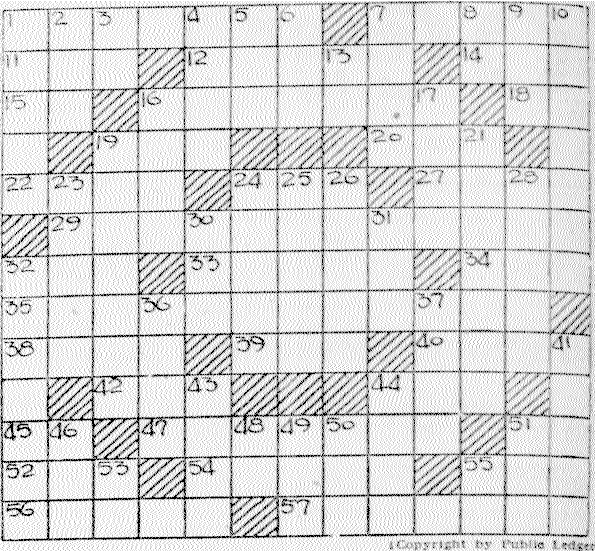 1 2 3 4 5 6 7 8 9 10
11 12 13 14
15 16 17 18
19 20 21
22 23 24 25 26 27 28
29 30 31
32 33 34
35 36 37
38 39 40 41
42 43 44
45 46 47 48 49 50 51
52 53 54 55
56 57
(Copyright by Public Ledger